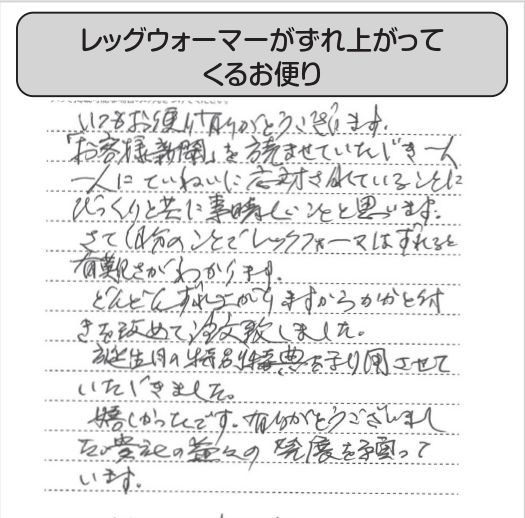 レッグウォーマーがずれ上がって
くるお便り
いつもお便り有りがとうございます。
「お客様新聞」を読ませていただき一人
一人にていねいに応対されていることに
びっくりと共に素晴しいことと思います。
さて自分のことでレッグウォーマはずれると
有難さがわかります。
どんどんずれ上がりますからかかと付
きを改めて注文致しました。
誕生月の特別特典を利用させて
いただきました。
嬉しかったです。有りがとうございまし
た。貴社の益々の発展を願って
います。